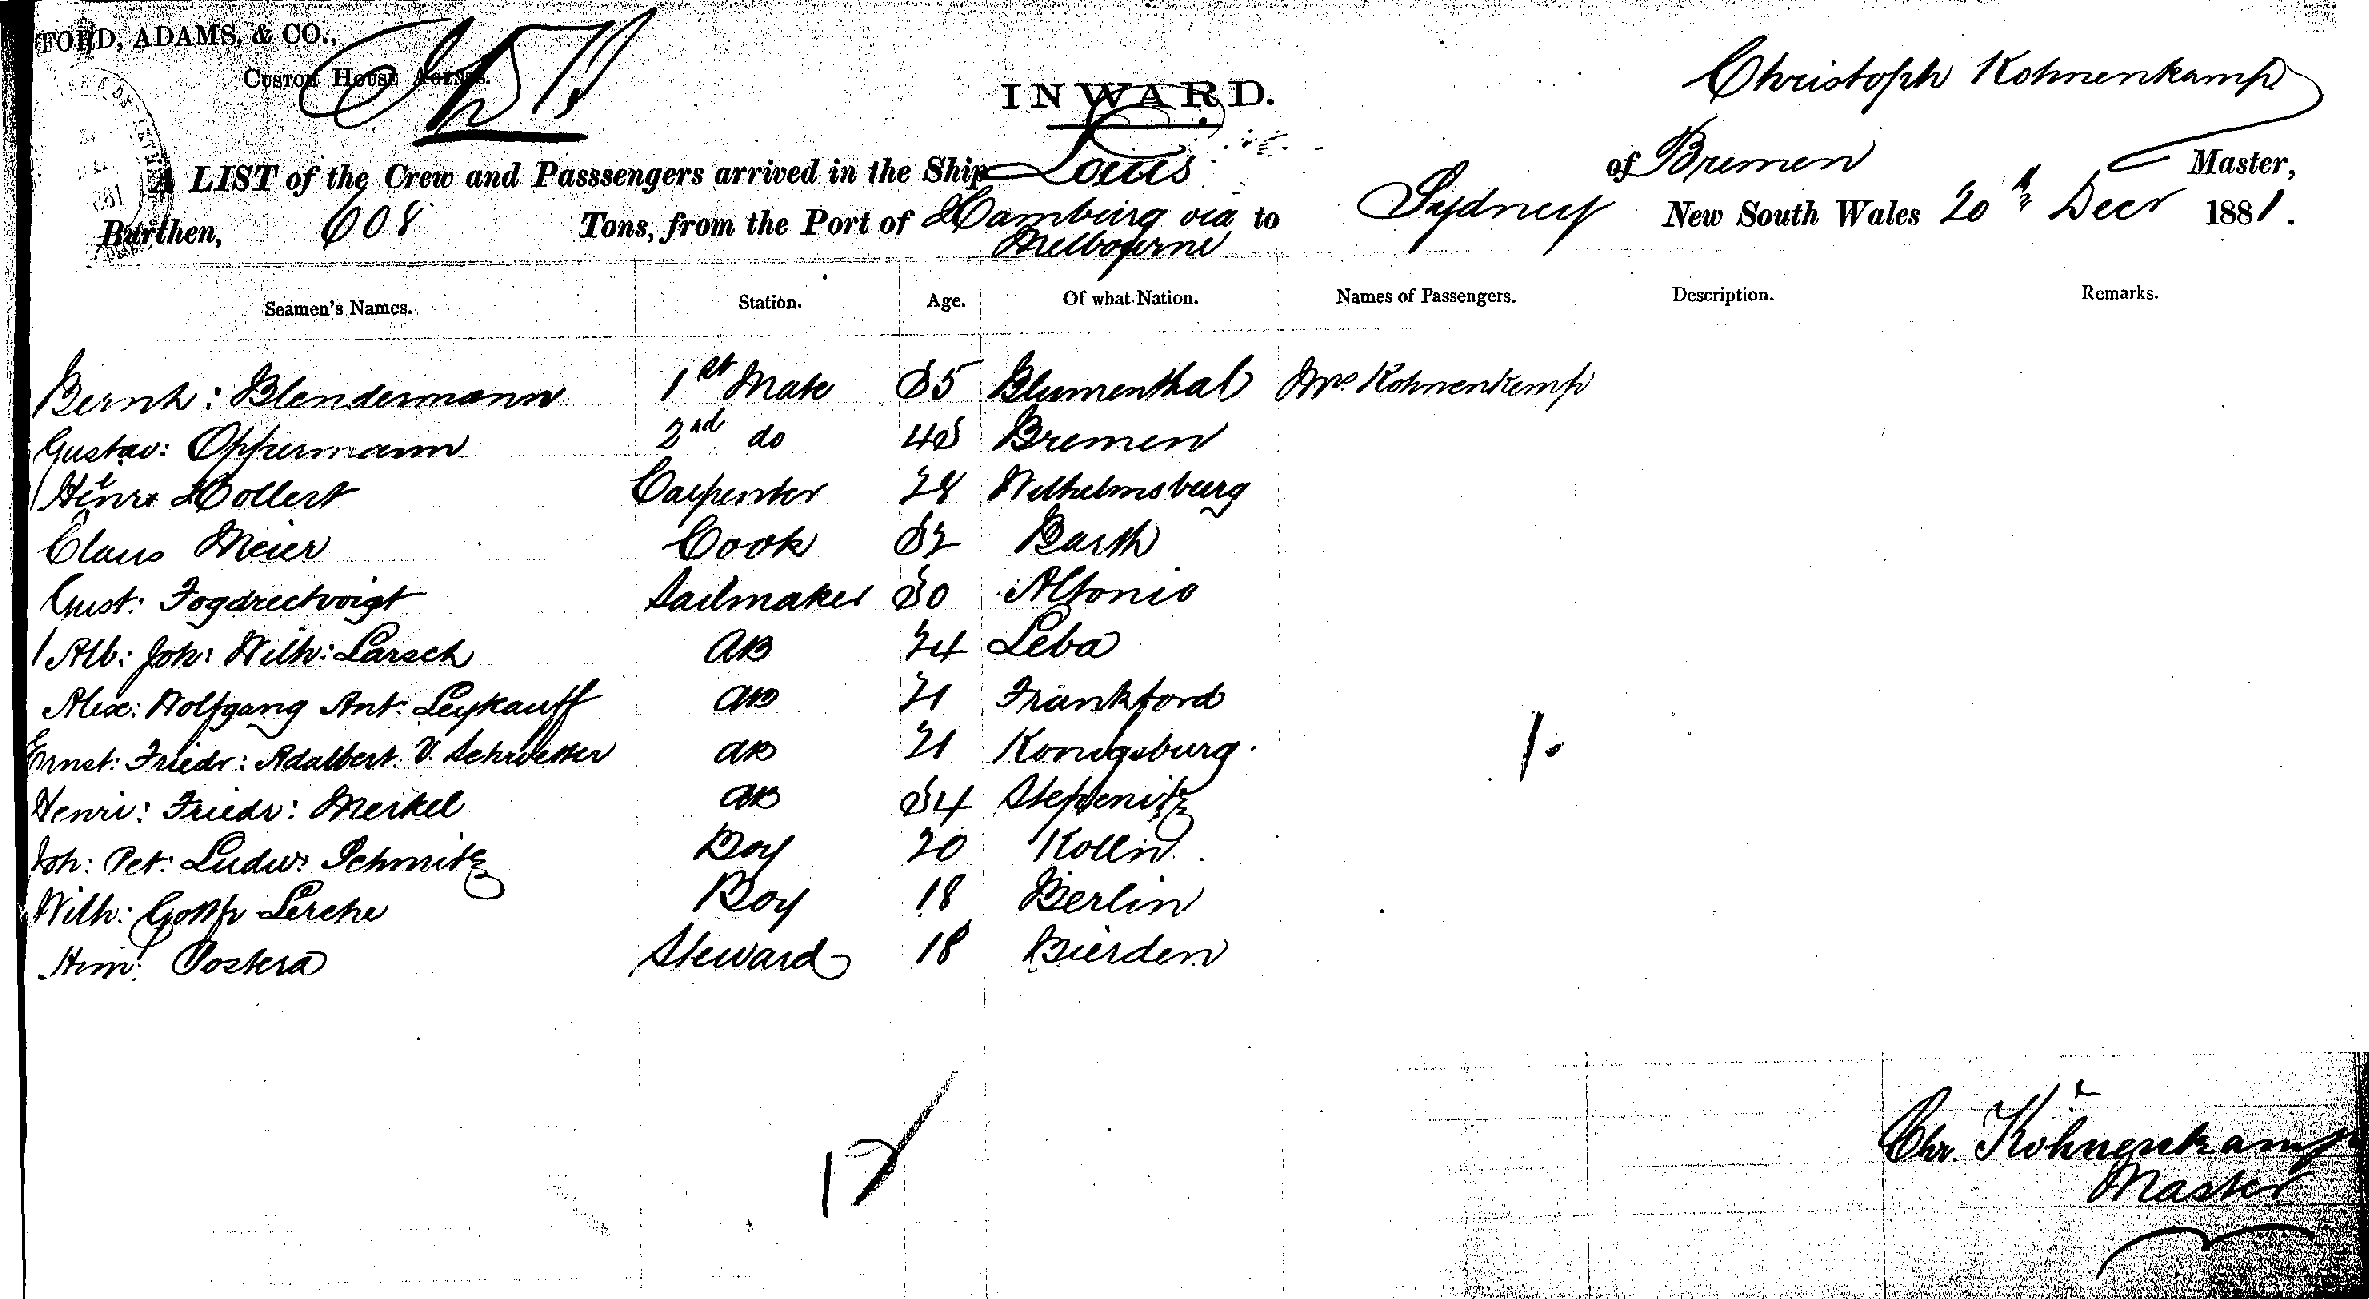 FORD, ADAMS, & CO.,
Custom House Agents.
INWARD.
Christoph Kohnenkamp
A LIST of the Crew and Passsengers arrived in the Ship Louis of Bremen Master,
Burthen, 608 Tons, from the Port of Hamburg via Melbourne to Sydney New South Wales 20th Decr 1881.
Seamen's Names. Station. Age. Of what Nation. Names of Passengers. Description. Remarks.
Bernh: Blendermann 1st Mate 35 Blumenthal Mrs Kohnenkemp
Gustav: Oppermann 2nd do 43 Bremen
Hinre Dollert Carpenter 28 Wilhelmsburg
Claus Meier Cook 32 Barth
Gust: Fogdrectvoigt Sailmaker 30 Altonio
Alb: Joh: Wilh: Larsch AB 24 Leba
Alex: Wolfgang Ant: Leykauff AB 21 Frankford
Ernst: Friedr: Adalbert V. Schwetter AB 21 Konigsburg.
Henri: Friedr: Merkel AB 34 Stepenitz
Joh: Pet: Ludw: Schmitz Boy 20 Kolln
Wilh: Lerche Boy 18 Berlin
Hem: Postera Steward 18 Bierden
1.
12
Chr. Köhnenkamp
Master